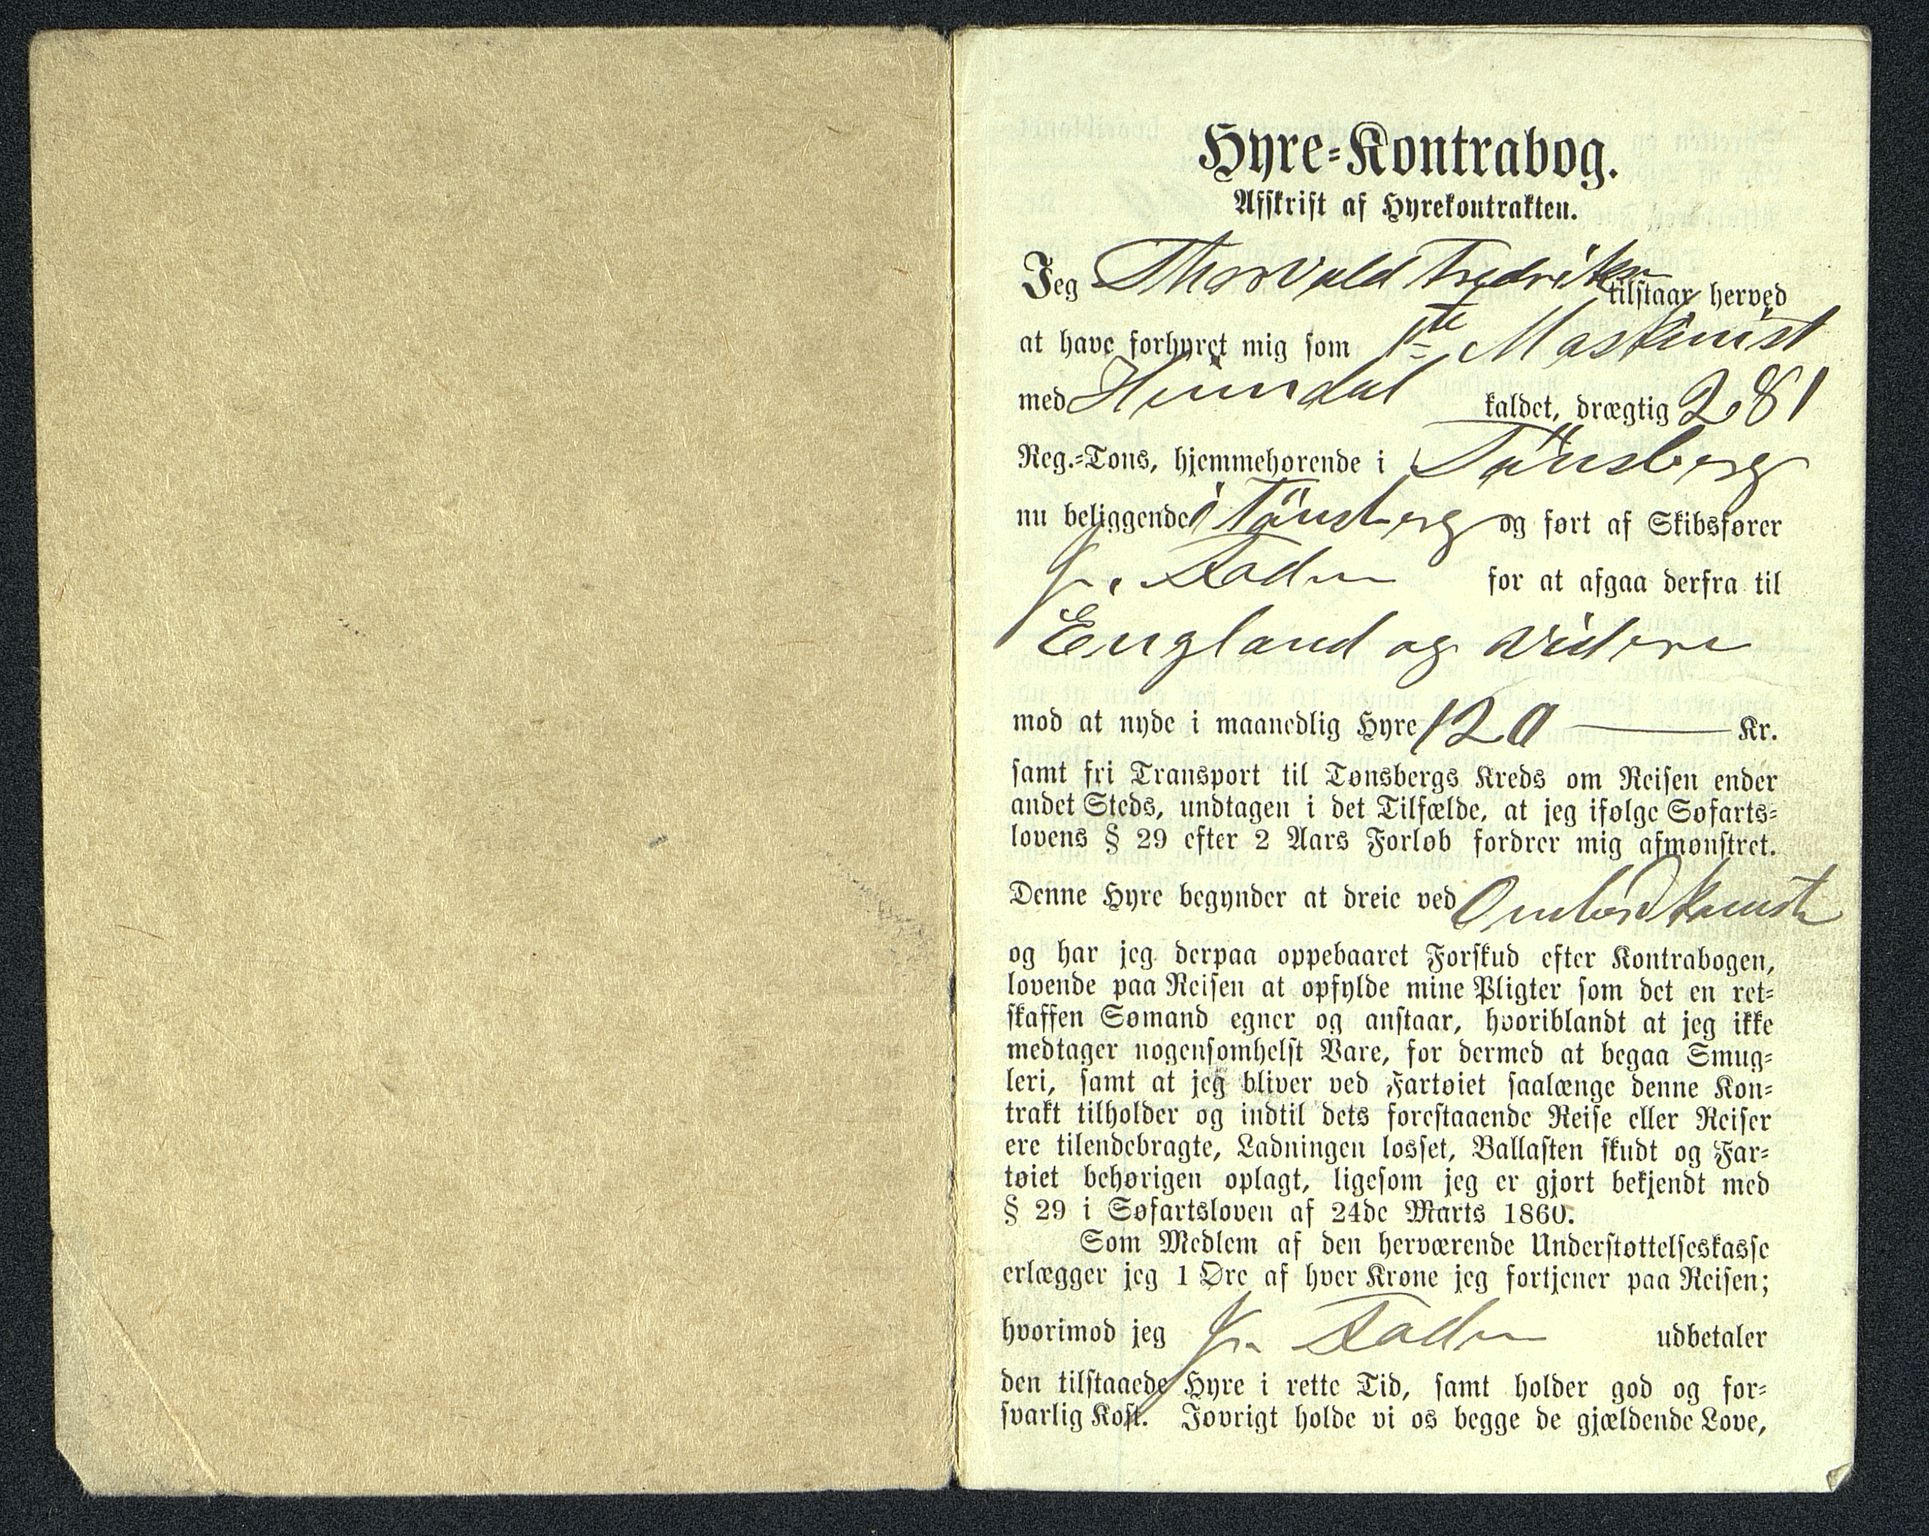 Hyre-Kontrabog.
Afskrift af Hyrekontrakten.
Jeg Thorvald Fredriksen tilstaar herved
at have forhyret mig som 1ste Maskinist
med Heimdal kaldet, drægtig 281
Reg.-Tons, hjemmehørende i Tönsberg
nu beliggende i Tönsberg og ført af Skibsfører
for at afgaa derfra til
England og videre
mod at nyde i maanedlig Hyre 120 Kr.
samt fri Transport til Tønsbergs Kreds om Reisen ender
andet Steds, undtagen i det Tilfælde, at jeg ifølge Søfarts-
lovens § 29 efter 2 Aars Forløb fordrer mig afmønstret.
Denne Hyre begynder at dreie ved Ombordkomst
og har jeg derpaa oppebaaret Forskud efter Kontrabogen,
lovende paa Reisen at opfylde mine Pligter som det en ret-
skaffen Sømand egner og anstaar, hvoriblandt at jeg ikke
medtager nogensomhelst Vare, for dermed at begaa Smug-
leri, samt at jeg bliver ved Fartøiet saalænge denne Kon-
trakt tilholder og indtil dets forestaaende Reise eller Reiser
ere tilendebragte, Ladningen losset, Ballasten skudt og Far-
tøiet behørigen oplagt, ligesom jeg er gjort bekjendt med
§ 29 i Søfartsloven af 24de Marts 1860.
Som Medlem af den herværende Understøttelseskasse
erlægger jeg 1 Øre af hver Krone jeg fortjener paa Reisen;
hvorimod jeg udbetaler
den tilstaaede Hyre i rette Tid, samt holder god og for-
svarlig Kost. Iøvrigt holde vi os begge de gjældende Love,